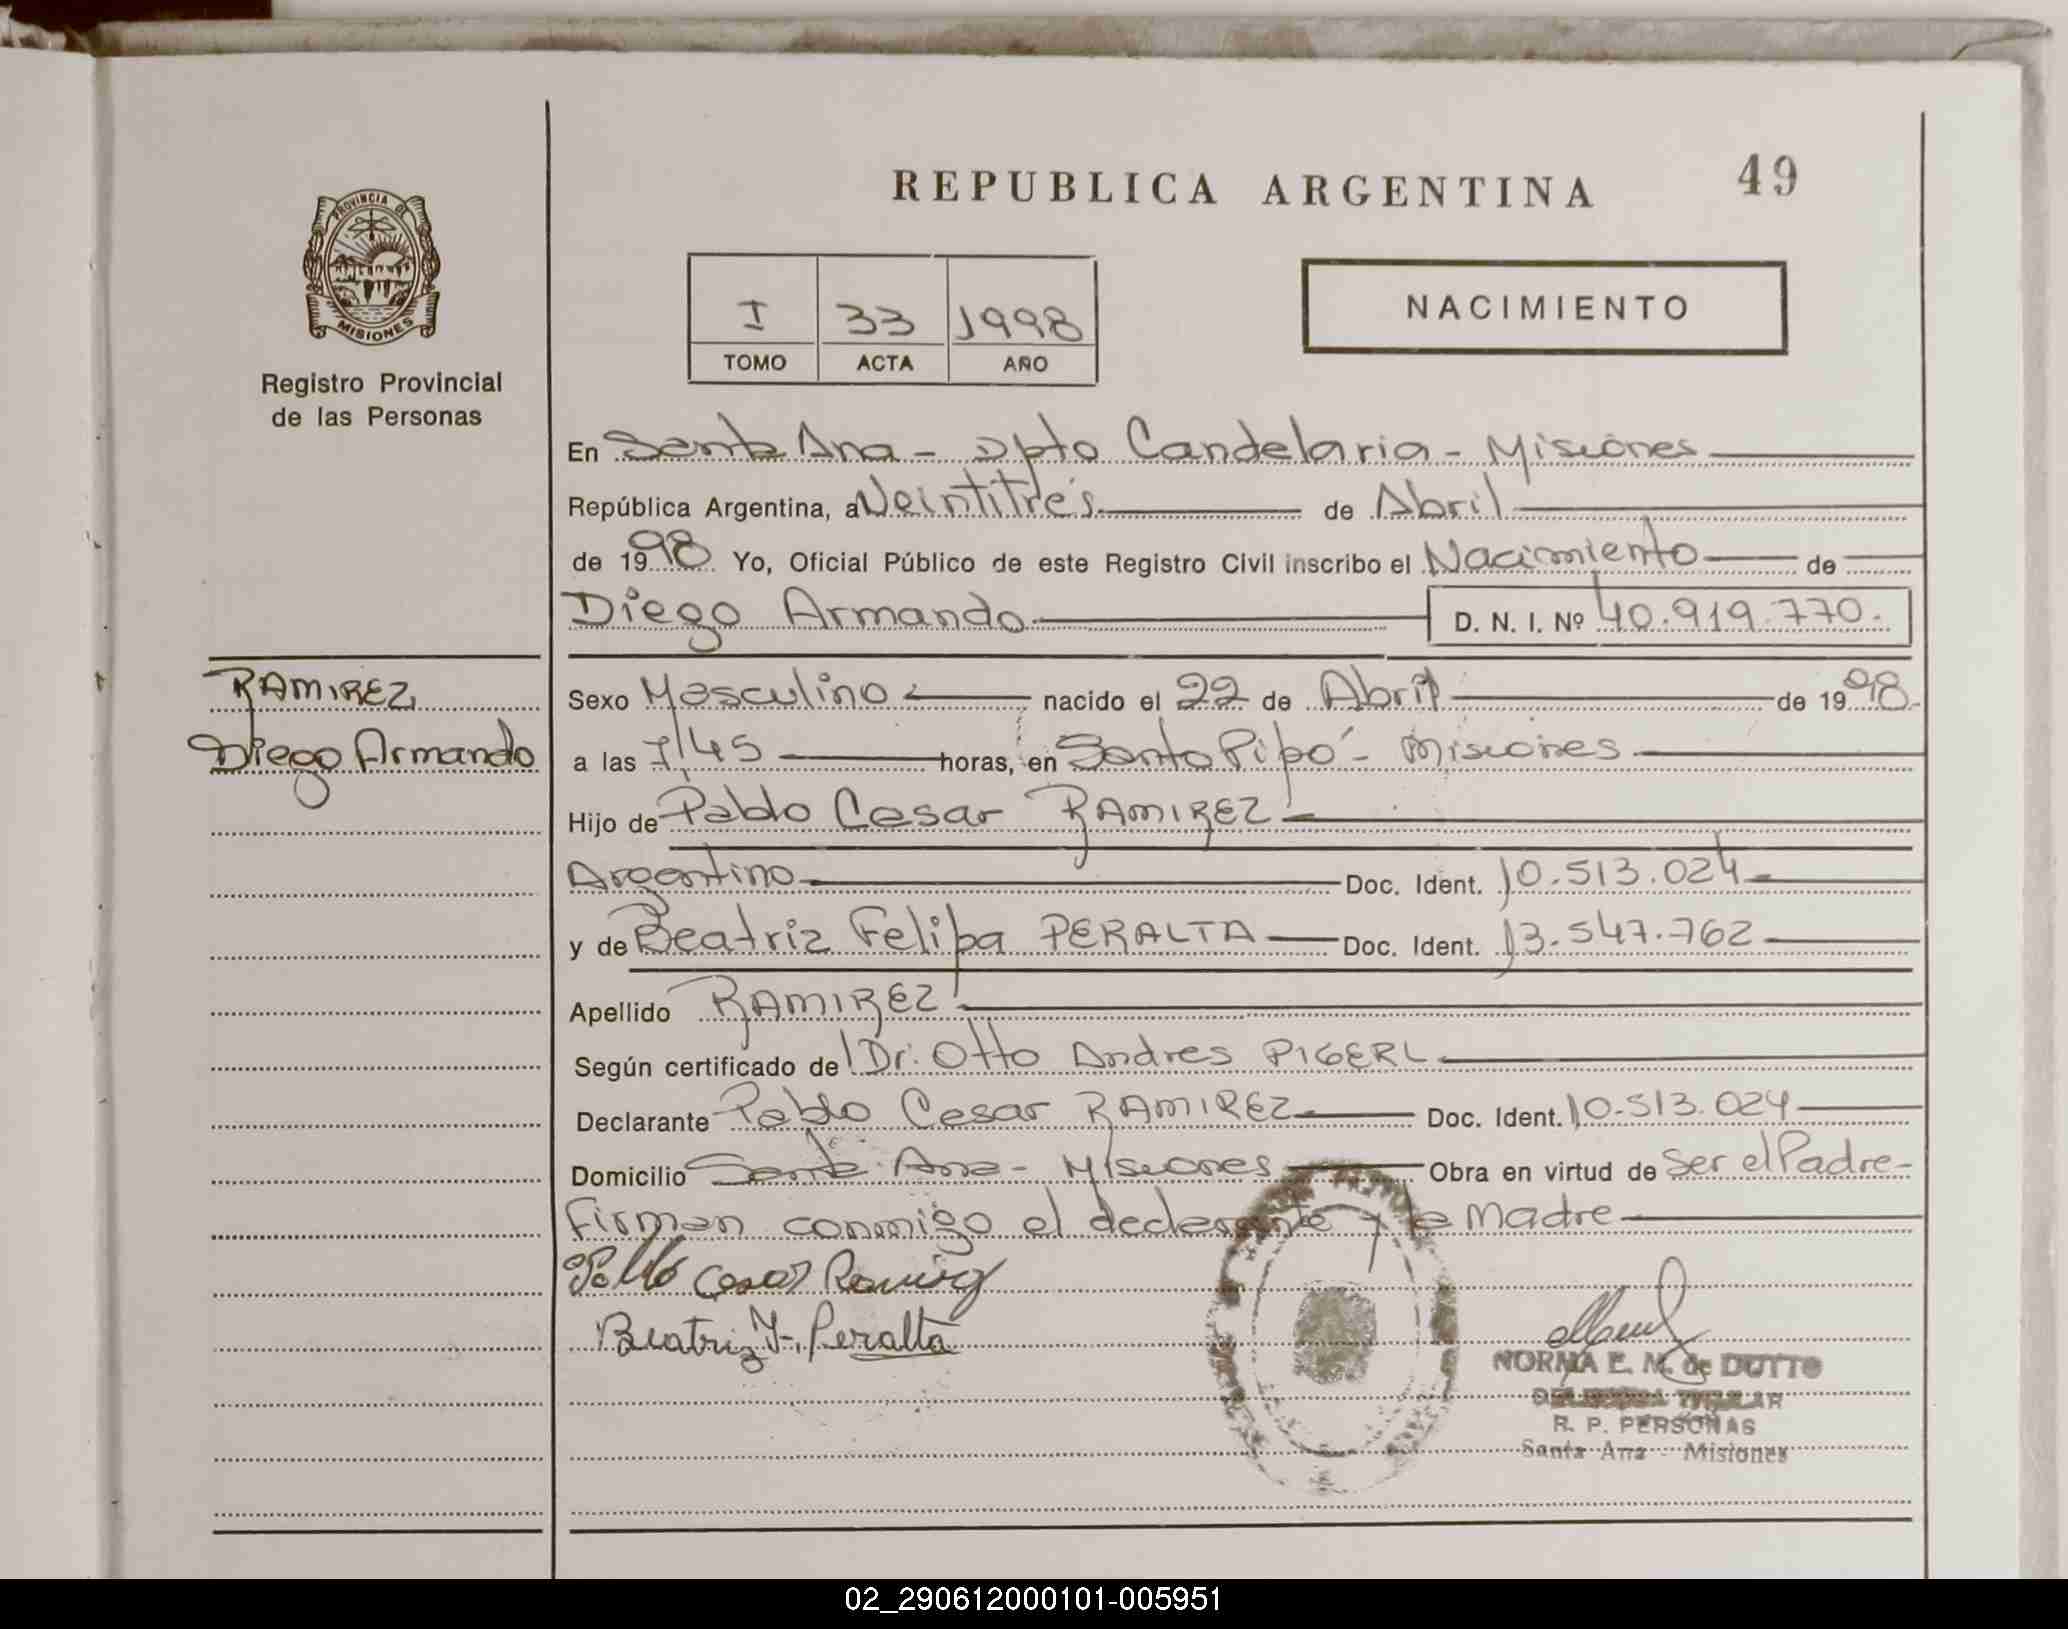 REPUBLICA ARGENTINA
49
PROVINCIA DE
MISIONES
Registro Provincial
de las Personas
I 33 1998
TOMO ACTA AÑO
NACIMIENTO
En Santa Ana - Dpto Candelaria - Misiones
República Argentina, a Veintitrés de Abril
de 1998 Yo, Oficial Público de este Registro Civil inscribo el Nacimiento de
Diego Armando D. N. I. Nº 40.919.770.
RAMIREZ
Diego Armando
Sexo Masculino nacido el 22 de Abril de 1998.
a las 7,45 horas, en Santo Pipó - Misiones
Hijo de Pablo Cesar RAMIREZ
Argentino Doc. Ident. 10.513.024
y de Beatriz Felipa PERALTA Doc. Ident. 13.547.762
Apellido RAMIREZ
Según certificado de Dr. Otto Andres PIGERL
Declarante Pablo Cesar RAMIREZ Doc. Ident. 10.513.024
Domicilio Santa Ana - Misiones Obra en virtud de Ser el Padre -
Firman conmigo el declarante y la Madre
Pablo Cesar Ramirez
Beatriz F. Peralta
NORMA E. M. de DUTTO
TITULAR
R. P. PERSONAS
Santa Ana - Misiones
02_290612000101-005951